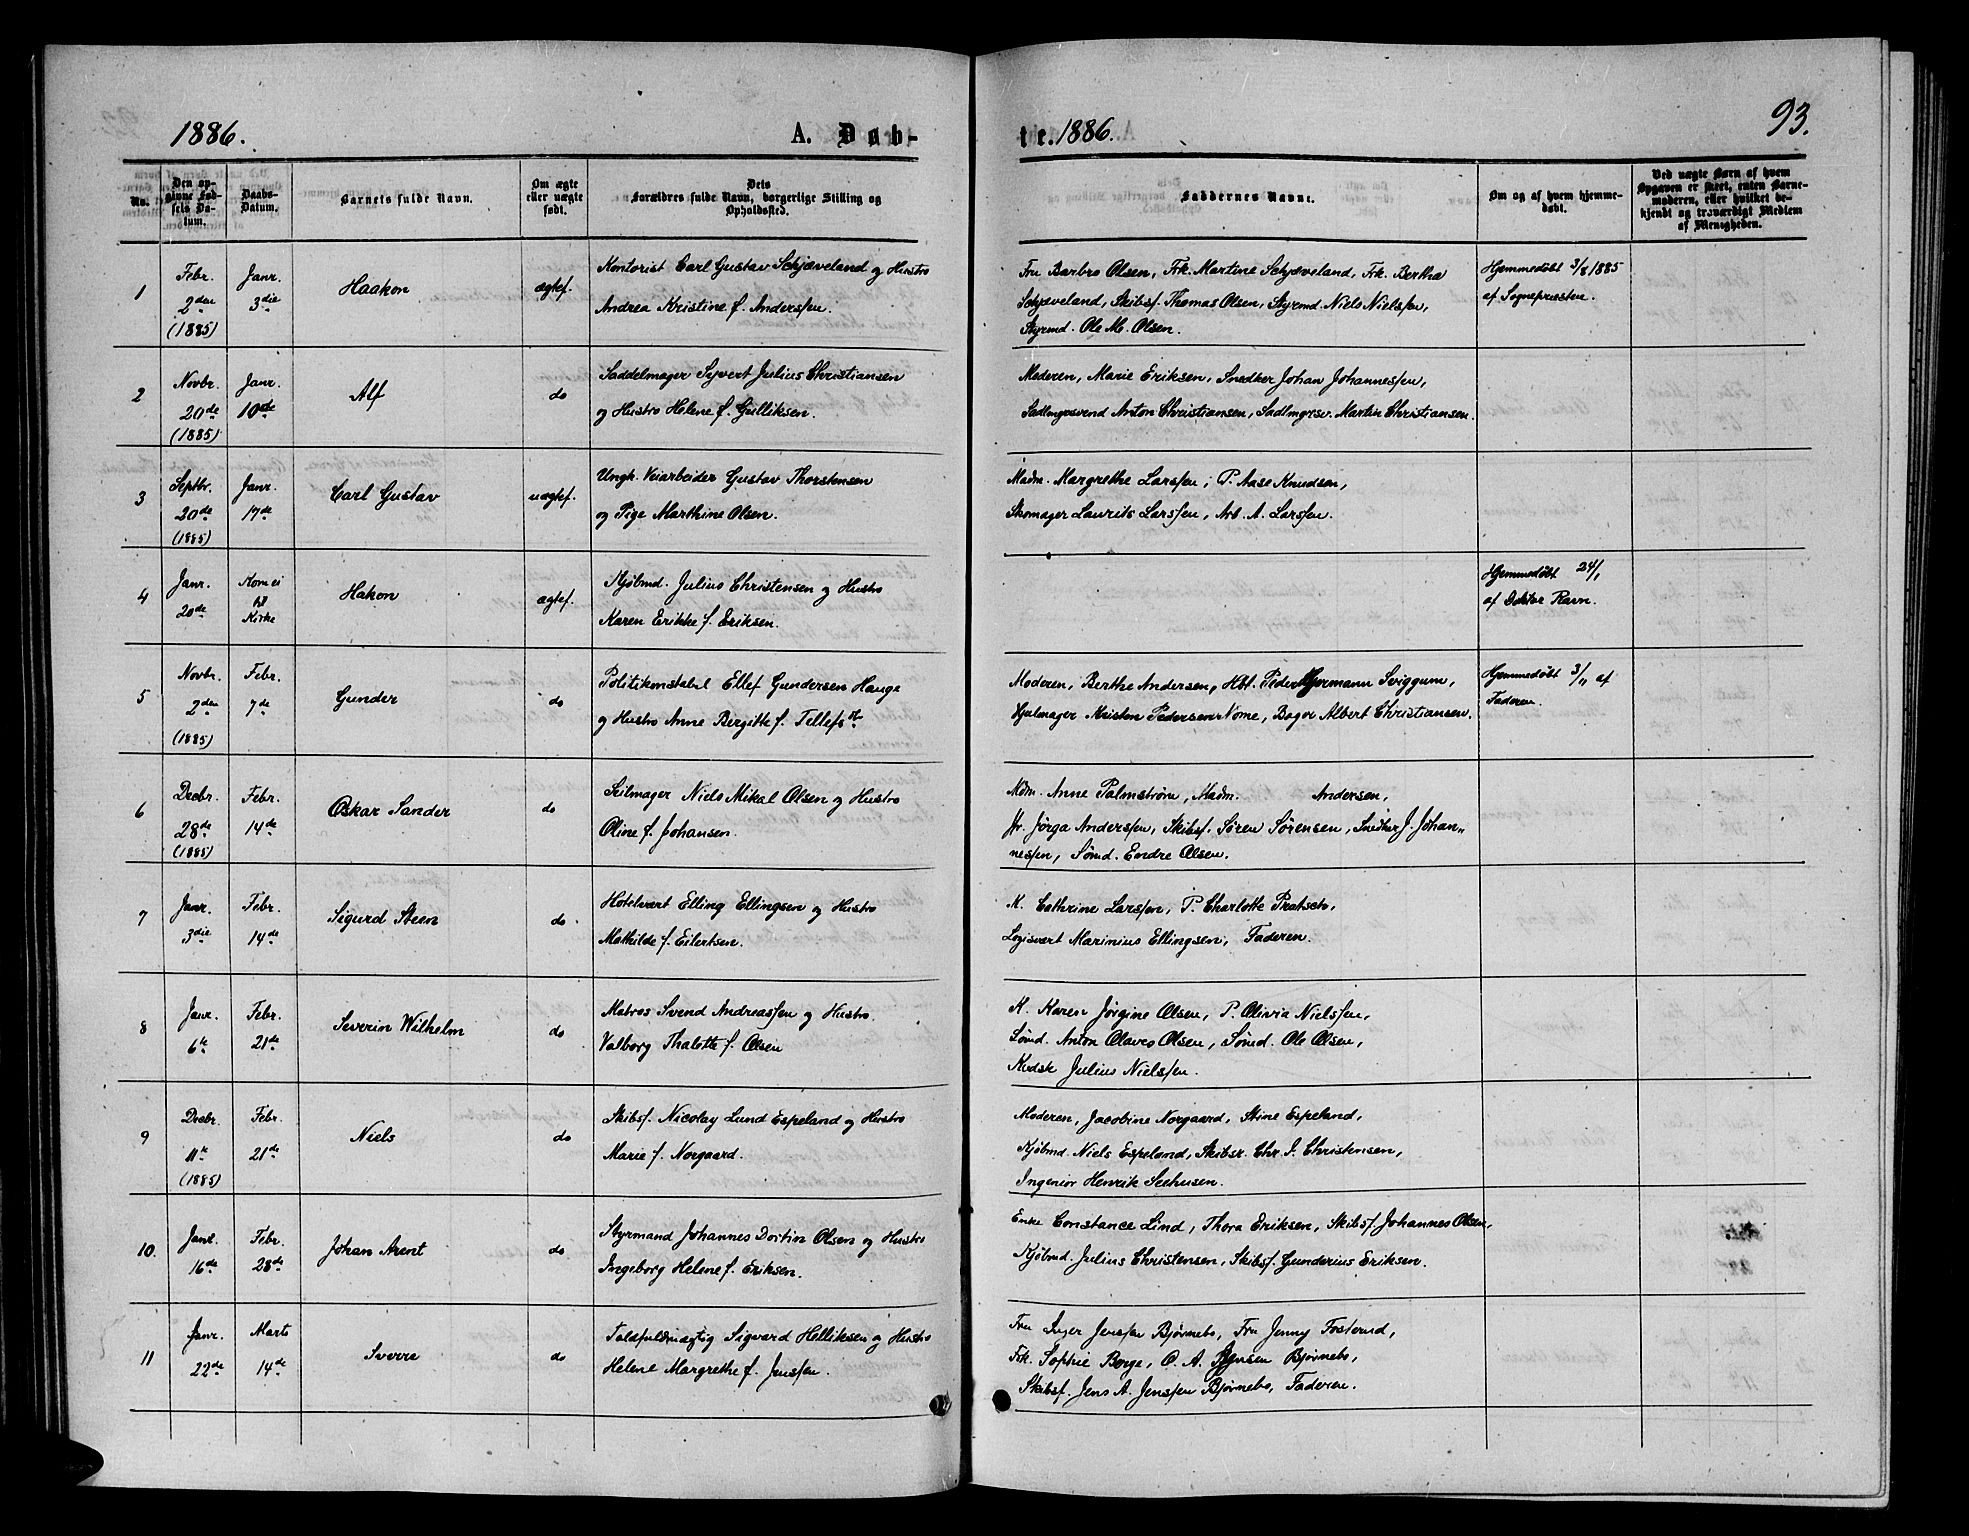 1886.
A. Døb-
te. 1886.
93.
No.
Den opgivne Fødsels Datum.
Daabs-Datum.
Barnets fulde Navn.
Om ægte eller uægte født.
Dets Forældres fulde Navn, borgerlige Stilling og Opholdssted.
Faddernes Navne.
Om og af hvem hjemmedøbt.
Ved uægte Børn af hvem Opgaven er skeet, enten Barnemoderen, eller hvilket bekjendt og troværdigt Medlem af Menigheden.
1
Febr. 2den (1885)
Janr. 3die
Haakon
ægtef.
Kontorist Carl Gustav Schjæveland og Hustro
Andrea Kristine f. Anderssen.
Fru Barbro Olsen, Frk. Martine Schjæveland, Frk. Bertha
Schjæveland, Skibsf. Thomas Olsen, Styrmd. Niels Nielssen,
Styrmd. Ole M. Olsen.
Hjemmedøbt 3/8 1885
af Sognepresten.
2
Novbr. 20de (1885)
Janr. 10de
Alf
do
Saddelmager Syvert Julius Christiansen
og Hustro Helene f. Gulliksen.
Moderen, Marie Eriksen, Snedker Johan Johannessen,
Sadlmgrsvend Anton Christiansen, Sadlmgrsv. Martin Christiansen.
3
Septbr. 20de (1885)
Janr. 17de
Carl Gustav
uægtef.
Ungk. Veiarbeider Gustav Thorstensen
og Pige Marthine Olsen.
Madm. Margrethe Larssen, P. Aase Knudsen,
Skomager Laurits Larssen, Arb. A. Larssen.
4
Janr. 20de
Kom ei til Kirke
Hakon
ægtef.
Kjøbmd. Julius Christensen og Hustro
Karen Erikke f. Eriksen.
Hjemmedøbt 24/1
af Doktor Ravn.
5
Novbr. 2den (1885)
Febr. 7de
Gunder
do
Politikonstabel Ellef Gundersen Hauge
og Hustro Anne Bergitte f. Tellefsdt.
Moderen, Berthe Andersen, Hbt. Peder Hermann Sviggum,
Hjulmager Kristen Pedersen Nome, Bager Albert Christiansen.
Hjemmedøbt 3/11 af
Faderen.
6
Decbr. 28de (1885)
Febr. 14de
Oskar Sander
do
Seilmager Niels Mikal Olsen og Hustro
Oline f. Johansen.
Mdm. Anne Palmstrøm, Madm. Andersen,
Jfr. Jørga Anderssen, Skibsf. Søren Sørensen, Snedker J. Johan-
nessen, Sømd. Endre Olsen.
7
Janr. 3die
Febr. 14de
Sigurd Steen
do
Hotelvært Elling Ellingsen og Hustro
Mathilde f. Eilertsen.
K. Cathrine Larssen, P. Charlotte
Logisvert Marinius Ellingsen, Faderen.
8
Janr. 6te
Febr. 21de
Severin Wilhelm
do
Matros Svend Andreassen og Hustro
Valborg Thalette f. Olsen
K. Karen Jørgine Olsen, P. Olivia Nielssen,
Sømd. Anton Olaves Olsen, Sømd. Ole Olsen,
Kudsk Julius Nielssen.
9
Decbr. 11te (1885)
Febr. 21de
Niels
do
Skibsf. Nicolay Lund Espeland og Hustro
Marie f. Norgaard.
Moderen, Jacobine Norgaard, Stine Espeland,
Kjøbmd. Niels Espeland, Skibsr. Chr. S. Christensen,
Ingeniør Henrik Seehusen.
10.
Janr. 16de
Febr. 28de
Johan Arent
do
Styrmand Johannes Dortin Olsen og Hustro
Ingeborg Helene f. Eriksen.
Enke Constance Lind, Thora Eriksen, Skibsf. Johannes Olsen,
Kjøbmd. Julius Christensen, Skibsf. Gunderius Eriksen.
11
Janr. 22de
Marts 14de
Sverre
do
Toldfuldmægtig Sigvard Helliksen og Hustro
Helene Margrethe f. Jenssen.
Fru Inger Jenssen Bjørnebo, Fru Jenny Fosterud,
Frk. Sophie Berge, O. A. Jensen Bjørnebo,
Skibsf. Jens A. Jenssen Bjørnebo, Faderen.